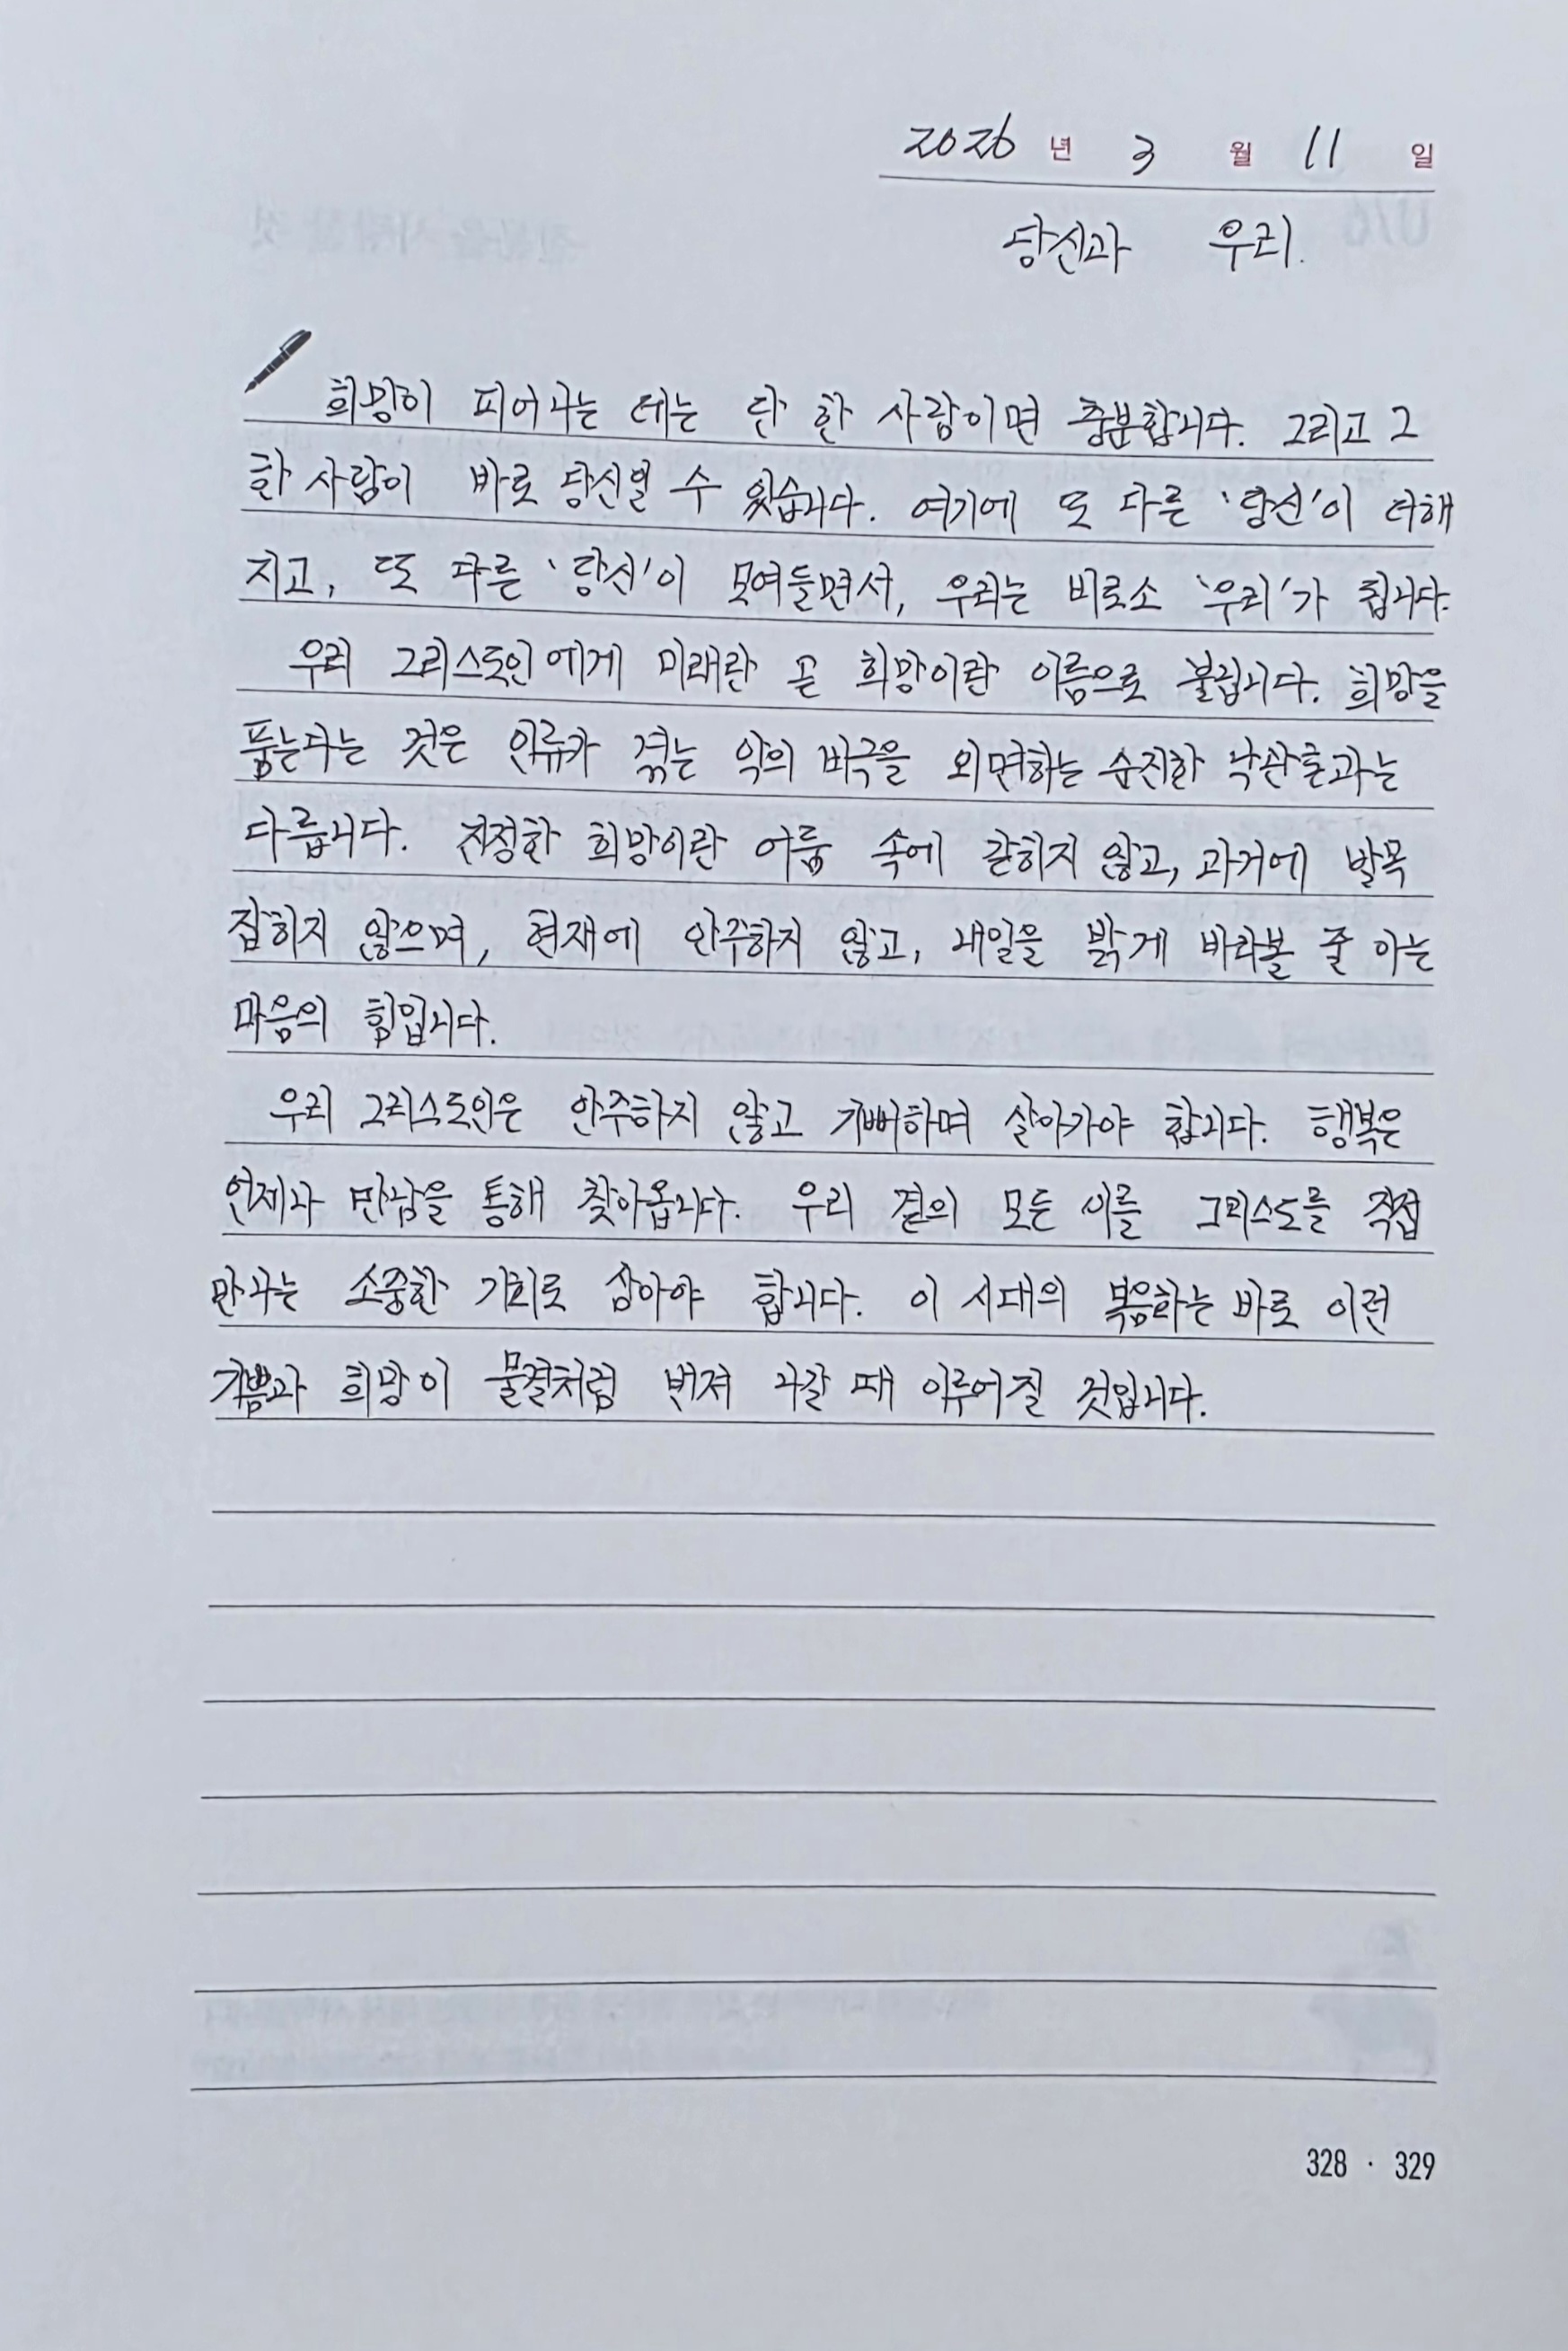 2026 년 3 월 11 일
당신과 우리.
희망이 피어나는 데는 단 한 사람이면 충분합니다. 그리고 그
한 사람이 바로 당신일 수 있습니다. 여기에 또 다른 '당신'이 더해
지고, 또 다른 '당신'이 모여들면서, 우리는 비로소 '우리'가 됩니다.
우리 그리스도인에게 미래란 곧 희망이란 이름으로 불립니다. 희망을
품는다는 것은 인류가 겪는 악의 비극을 외면하는 순진한 낙관론과는
다릅니다. 진정한 희망이란 어둠 속에 갇히지 않고, 과거에 발목
잡히지 않으며, 현재에 안주하지 않고, 내일을 밝게 바라볼 줄 아는
마음의 힘입니다.
우리 그리스도인은 안주하지 않고 기뻐하며 살아가야 합니다. 행복은
언제나 만남을 통해 찾아옵니다. 우리 곁의 모든 이를 그리스도를 직접
만나는 소중한 기회로 삼아야 합니다. 이 시대의 복음화는 바로 이런
기쁨과 희망이 물결처럼 번져 나갈 때 이루어질 것입니다.
328 · 329